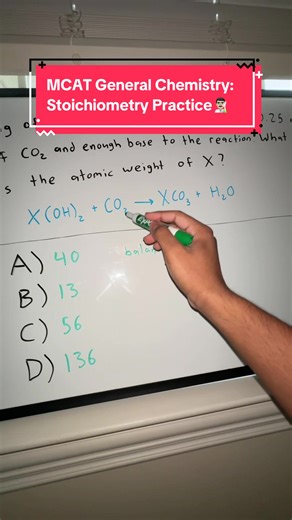 MCAT General Chemistry:
Stoichiometry Practice 👨🏻‍🔬
0.25
CO₂ and enough base to the reaction. What
the atomic weight of X?
X(OH)₂ + CO₂ → XCO₃ + H₂O
A) 40
B) 13
C) 56
D) 136